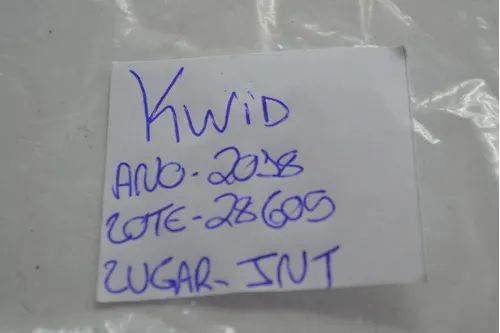 KWiD
ANO-2018
LOTE-28605
LUGAR-INT